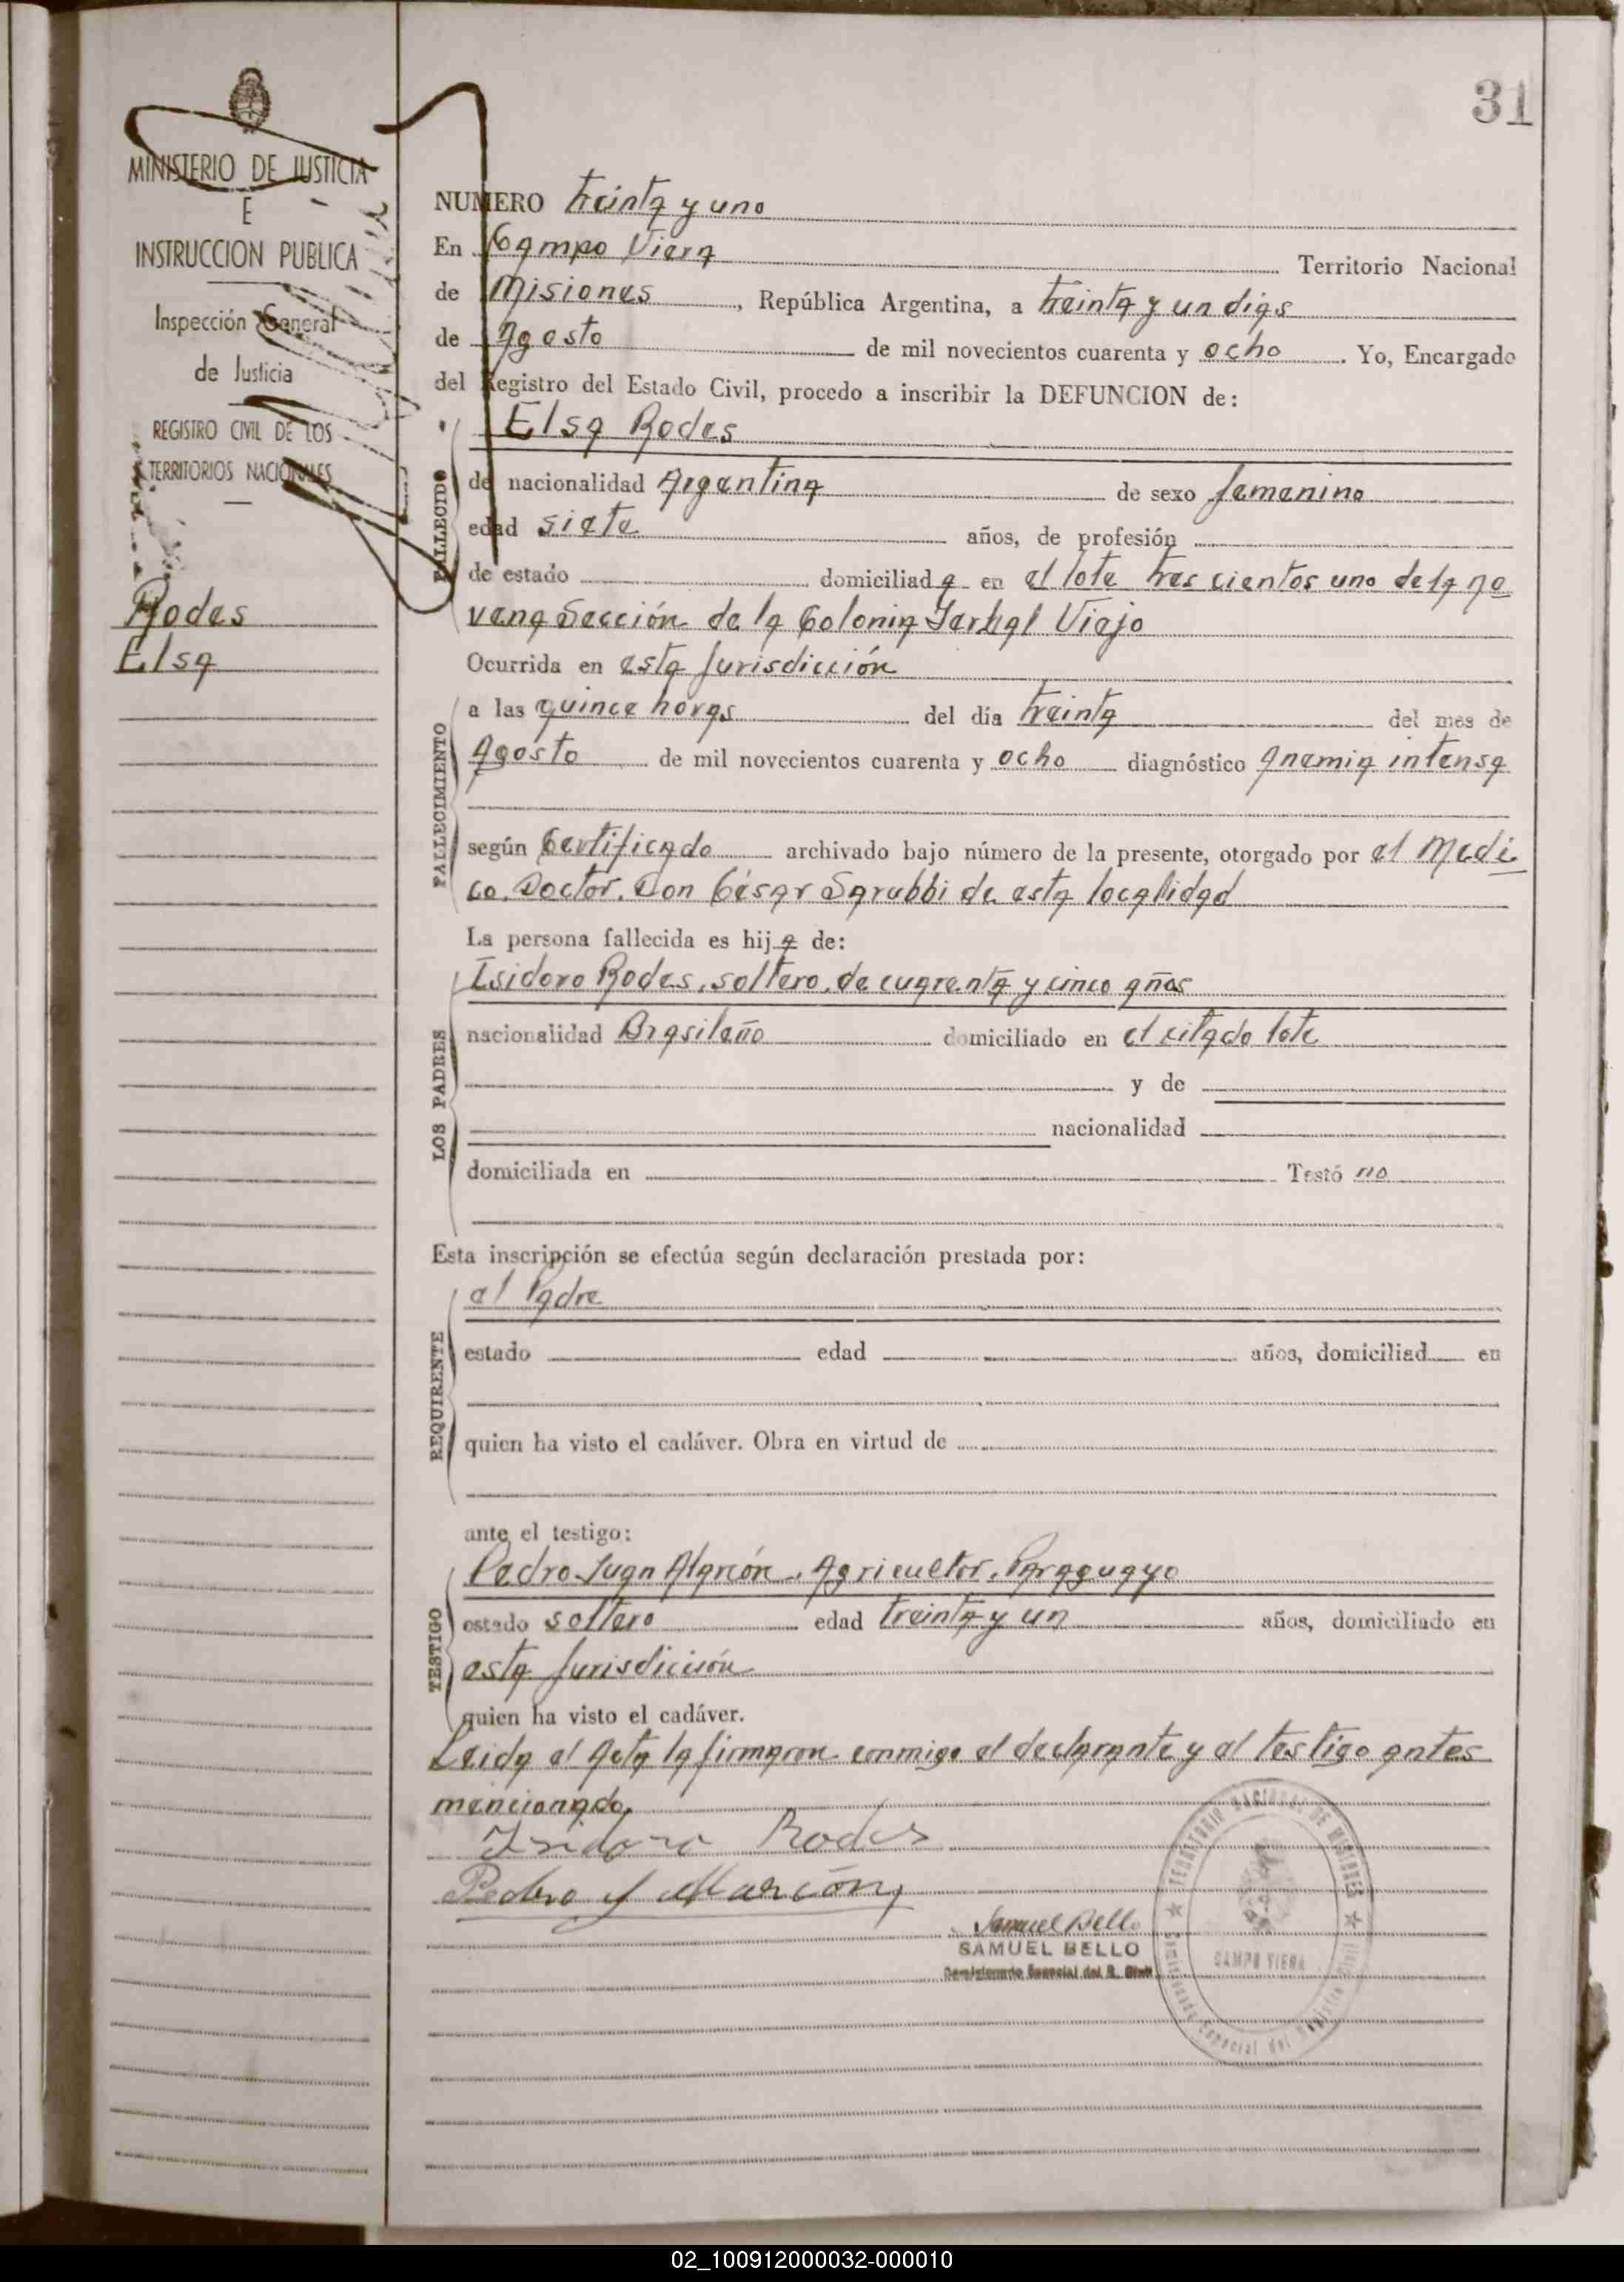 31
MINISTERIO DE JUSTICIA
E
INSTRUCCION PUBLICA
Inspección General
de Justicia
REGISTRO CIVIL DE LOS
TERRITORIOS NACIONALES
Rodes
Elsa
NUMERO treinta y uno
En Campo Viera Territorio Nacional
de Misiones, República Argentina, a treinta y un dias
de Agosto de mil novecientos cuarenta y ocho. Yo, Encargado
del Registro del Estado Civil, procedo a inscribir la DEFUNCION de:
Elsa Rodes
FALLECIDO
de nacionalidad Argentina de sexo femenino
edad siete años, de profesión
de estado domiciliada en el lote tres cientos uno de la no
vena Sección de la Colonia Yerbal Viejo
Ocurrida en esta Jurisdicción
FALLECIMIENTO
a las quince horas del día treinta del mes de
Agosto de mil novecientos cuarenta y ocho diagnóstico Anemia intensa
según Certificado archivado bajo número de la presente, otorgado por el Medi
co. Doctor. Don César Sarubbi de esta localidad
La persona fallecida es hija de:
LOS PADRES
Isidoro Rodes, soltero, de cuarenta y cinco años
nacionalidad Brasileño domiciliado en el citado lote
y de
nacionalidad
domiciliada en Testó no
Esta inscripción se efectúa según declaración prestada por:
REQUIRENTE
el Padre
estado edad años, domiciliad en
quien ha visto el cadáver. Obra en virtud de
ante el testigo:
TESTIGO
Pedro Juan Alarcón, Agricultor, Paraguayo
estado soltero edad treinta y un años, domiciliado en
esta Jurisdicción
quien ha visto el cadáver.
Leida el Acta la firmaron conmigo el declarante y el testigo antes
mencionado.
Isidoro Rodes
Pedro J Alarcón
Samuel Bello
SAMUEL BELLO
Comisionado Especial del R. Civil
TERRITORIO NACIONAL DE MISIONES
CAMPO VIERA
Comisionado Especial del Registro Civil
02_100912000032-000010